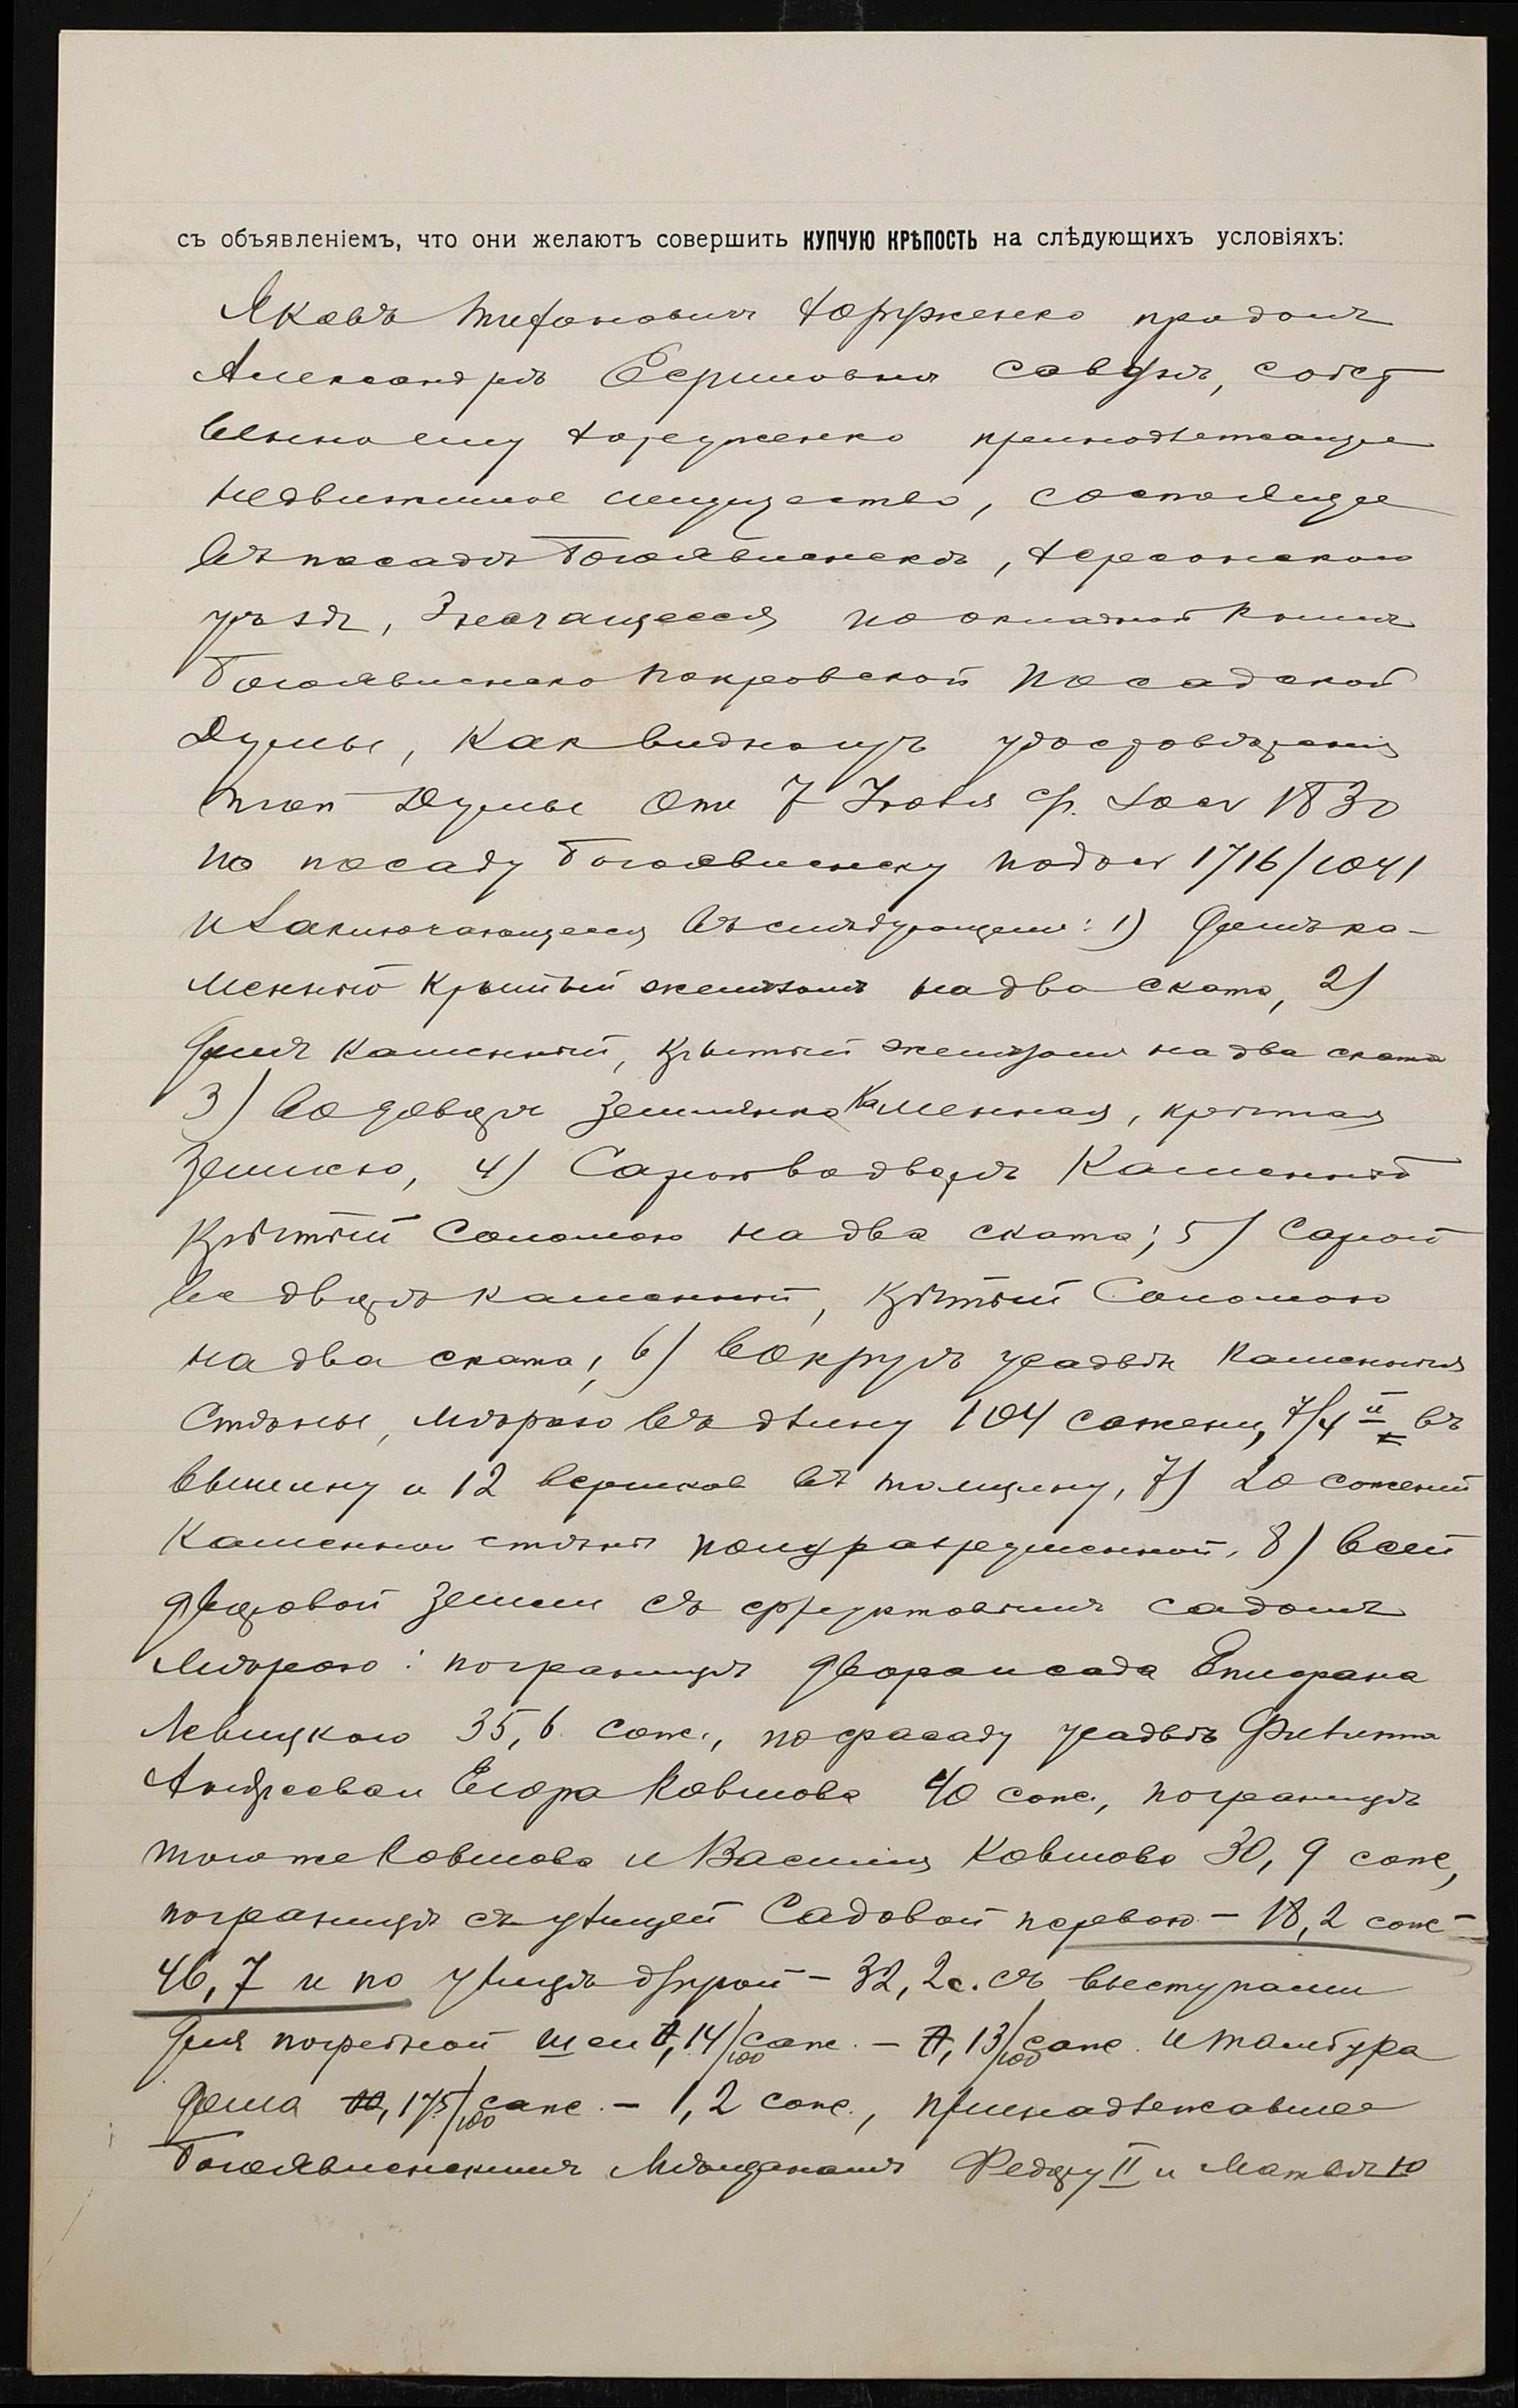 съ объявленіемъ, что они желаютъ совершить КУПЧУЮ КРѢПОСТЬ на слѣдующихъ условіяхъ:
Яковъ продалъ
Александрѣ собст
венно ему принадлежащее
недвижимое имущество, состоящее
въ посадѣ Богоявленскѣ, Херсонскаго
уѣзда, значащееся по окладной книгѣ
Богоявленско Покровской Посадской
Думы, как видно изъ удостовѣренія
той Думы отъ 7 Іюля с/г. за № 1830
по посаду Богоявленску подъ № 1716/1041
и заключающееся въ слѣдующемъ: 1) Домъ ка-
менный крытый желѣзомъ на два ската, 2)
Домъ каменный, крытый желѣзомъ на два ската
3) Во дворѣ землянка каменная, крытая
землею, 4) Сарай во дворѣ каменный
крытый соломою на два ската; 5) Сарай
во дворѣ каменный, крытый соломою
на два ската; 6) Вокругъ усадьбы каменныя
стѣны, мѣрою въ длину 104 сажени, 7/4 въ
вышину и 12 вершков въ толщину, 7) 20 саженей
каменной стѣны полуразрушенной, 8) всей
дворовой земли съ фруктовымъ садомъ
мѣрою: по границѣ двора и сада Епифана
Левицкаго 35,6 саж., по фасаду усадьбъ Филиппа
Андреева и Егора Ковшова 40 саж., по границѣ
того же Ковшова и Василія Ковшова 30,9 саж,
по границѣ съ улицей Садовой первою – 18,2 саж –
46,7 и по улицѣ другой – 32,2 с. съ выступами
для погребной шеи 14/100 саж. – 13/100 саж. и тамбура
дома 175/100 саж. – 1,2 саж., принадлежавшее
Богоявленскимъ Мѣщанамъ Федору II и Матвѣю